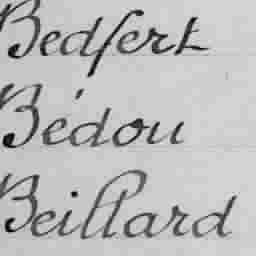 Bedfert
Bédou
Beillard